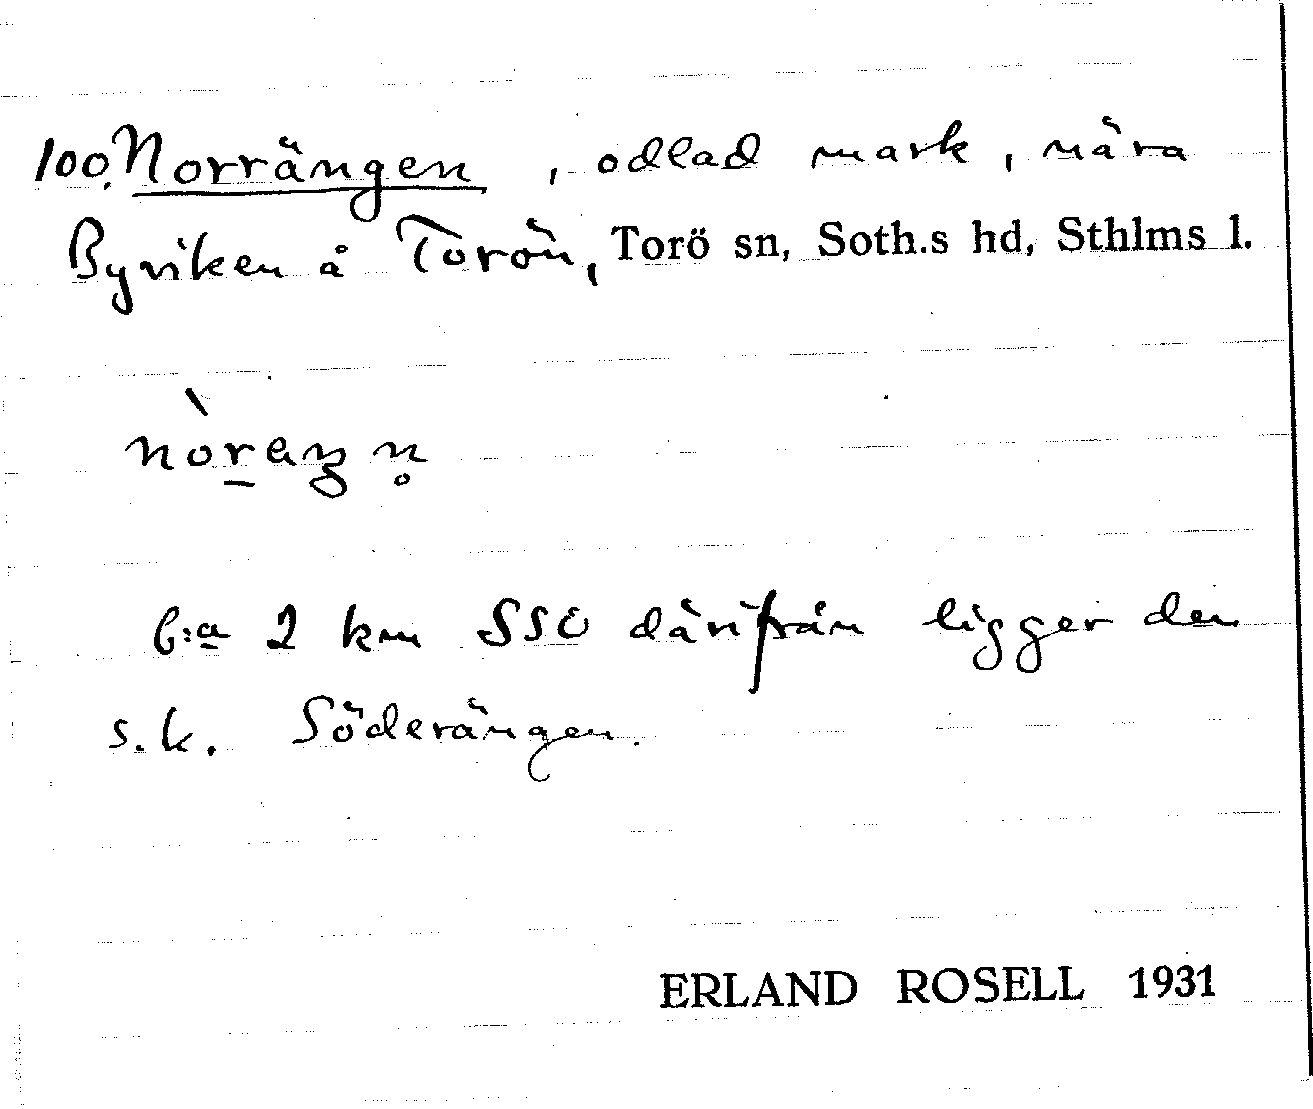 100. Norrängen, odlad mark, nära
Byviken å Torön, Torö sn, Soth.s hd, Sthlms l.
c:a 2 km SSO därifrån ligger den
s.k. Söderängen.
ERLAND ROSELL 1931